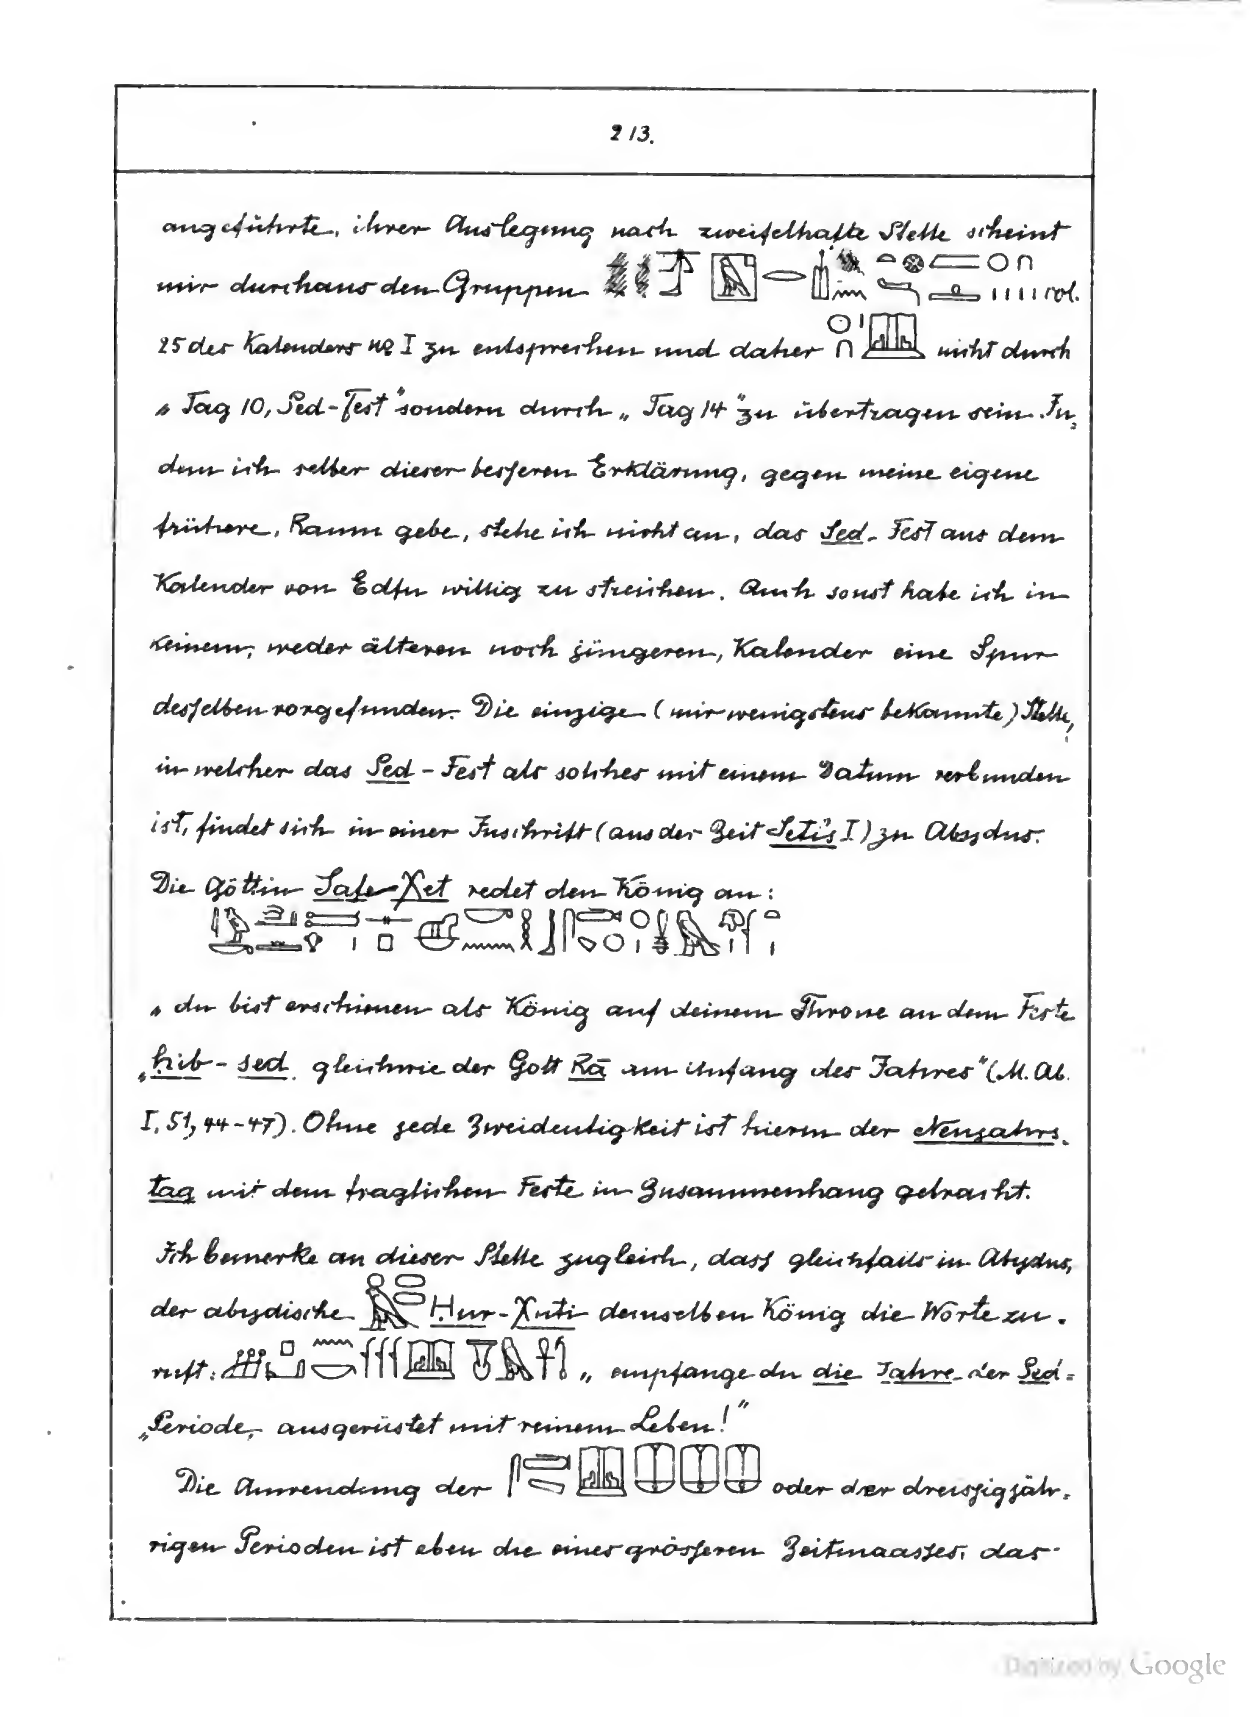 213.
angeführte, ihrer Auslegung nach zweifelhafte Stelle scheint
mir durchaus den Gruppen col.
25 des Kalenders No I zu entsprechen und daher nicht durch
„Tag 10, Sed-Fest" sondern durch „Tag 14" zu übertragen sein. In-
dem ich selber dieser besseren Erklärung, gegen meine eigene
frühere, Raum gebe, stehe ich nicht an, das Sed-Fest aus dem
Kalender von Edfu willig zu streichen. Auch sonst habe ich in
keinem, weder älteren noch jüngeren, Kalender eine Spur
desselben vorgefunden. Die einzige (mir wenigstens bekannte) Stelle,
in welcher das Sed-Fest als solches mit einem Datum verbunden
ist, findet sich in einer Inschrift (aus der Zeit Seti's I) zu Abydus.
Die Göttin Safe-χet redet den König an:
„du bist erschienen als König auf deinem Throne an dem Feste
„hib-sed gleichwie der Gott Rā am Anfang des Jahres" (M. Ab.
I, 51, 44-47). Ohne jede Zweideutigkeit ist hierin der Neujahrs-
tag mit dem fraglichen Feste in Zusammenhang gebracht.
Ich bemerke an dieser Stelle zugleich, dass gleichfalls in Abydus,
der abydische Hur-χuti demselben König die Worte zu-
ruft: „empfange du die Jahre der Sed-
„Periode, ausgerüstet mit reinem Leben!"
Die Anwendung der oder der dreissigjäh-
rigen Perioden ist eben die eines grösseren Zeitmaasses, das
Digitized by Google